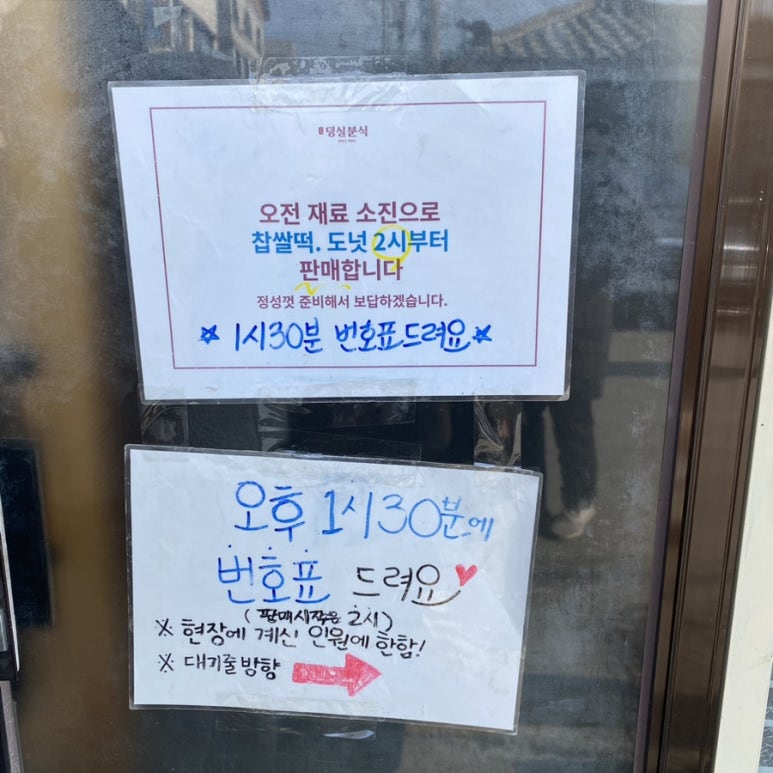 덩실분식
오전 재료 소진으로
찹쌀떡. 도넛 2시부터
판매합니다
정성껏 준비해서 보답하겠습니다.
☆ 1시30분 번호표드려요 ☆
오후 1시30분에
번호표 드려요♥
(판매시작은 2시)
※ 현장에 계신 인원에 한함!
※ 대기줄방향 →